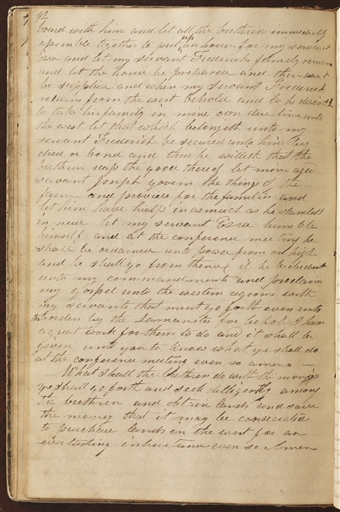 92
board with him and let all the brethren immediately
assemble together & put up an house for my servant
Ezra and let my servant Frederick family remain
and let the house be prepared and their wants
be supplied and when my servant Frederick
returns from the west behold and lo he desireth
to take his family in mine own due time unto
the west let that which belongeth unto my
servant Frederick be secured unto him by
deed or bond and thus he willeth that the
brethren reap the good thereof let mine
servant Joseph govern the things of the
farm and provide for the families and
let him have help in as much as he standeth
in need let my servant Ezra humble
himself and at the conference meeting he
shall be ordained unto power from on high
and he shall go from thence if he be obedient
unto my commandments and proclaim
my gospel unto the western regions with
my servants that must go forth even unto
borders by the Lamanites for behold I have
a great work for them to do and it shall be
given unto you to know what ye shall do
at the conference meeting even so amen
What shall the brethren do with the moneys
ye shall go forth and seek diligently among
the brethren and obtain lands and save
the money that it may be consecrated
to purchase lands in the west for an
everlasting inheritance even so Amen